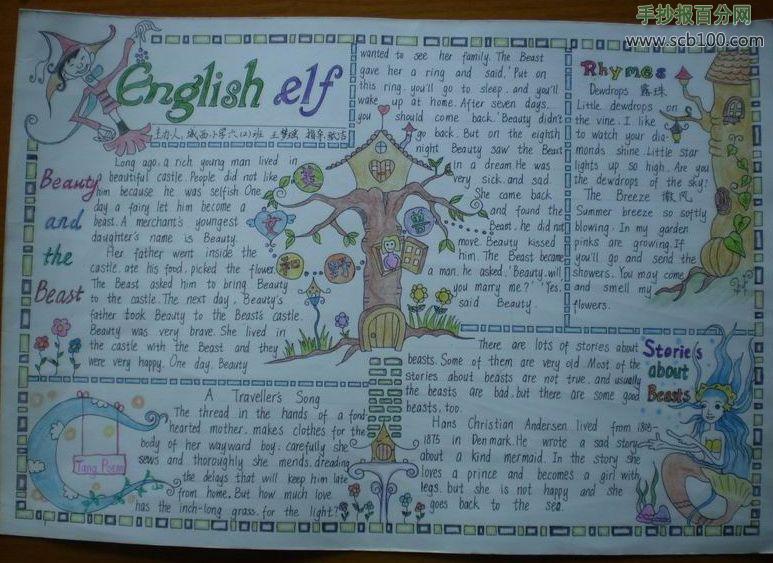 手抄报百分网
www.scb100.com
English elf
主办人：城西小学六(2)班
Beauty
and
the
Beast
Long ago, a rich young man lived in
a beautiful castle. People did not like
him because he was selfish. One
day a fairy let him become a
beast. A merchant's youngest
daughter's name is Beauty.
Her father went inside the
castle, ate his food, picked the flower.
The Beast asked him to bring Beauty
to the castle. The next day, Beauty's
father took Beauty to the Beast's castle.
Beauty was very brave. She lived in
the castle with the Beast and they
were very happy. One day, Beauty
wanted to see her family. The Beast
gave her a ring and said, 'Put on
this ring, you'll go to sleep, and you'll
wake up at home. After seven days,
you should come back.' Beauty didn't
go back. But on the eighth
night Beauty saw the Beast
in a dream. He was
very sick, and sad.
She came back
and found the
Beast, he did not
move. Beauty kissed
him. The Beast became
a man, he asked, 'Beauty, will
you marry me?' 'Yes,'
said Beauty.
美
女
和
野
兽
Rhymes
Dewdrops 露珠
Little dewdrops on
the vine. I like
to watch your dia-
monds shine. Little star
lights up so high. Are you
the dewdrops of the sky?
The Breeze 微风
Summer breeze so softly
blowing. In my garden
pinks are growing. If
you'll go and send the
showers. You may come
and smell my
flowers.
A Traveller's Song
The thread in the hands of a fond
hearted mother, makes clothes for the
body of her wayward boy, carefully she
sews and thoroughly she mends, dreading
the delays that will keep him late
from home. But how much love
has the inch-long grass, for the light?
Tang Poem
Stories
about
Beasts
There are lots of stories about
beasts. Some of them are very old. Most of the
stories about beasts are not true, and usually
the beasts are bad, but there are some good
beasts, too.
Hans Christian Andersen lived from 1805-
1875 in Denmark. He wrote a sad story
about a kind mermaid. In the story she
loves a prince and becomes a girl with
legs, but she is not happy and she
goes back to the sea.